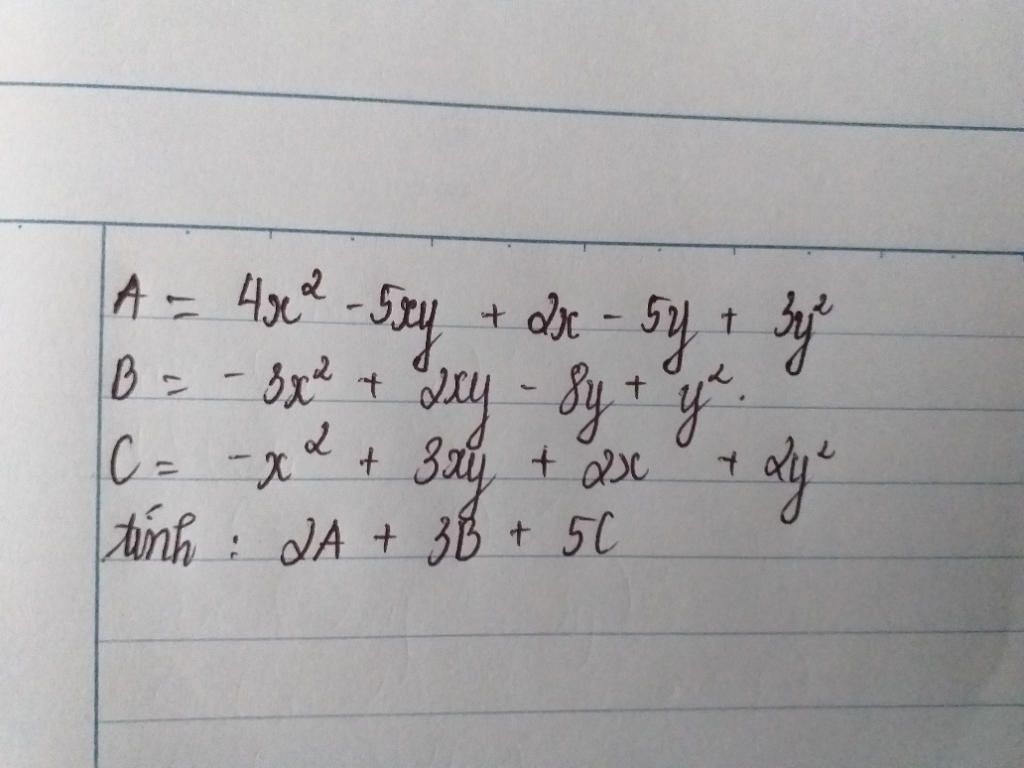 A = 4x² - 5xy + 2x - 5y + 3y²
B = - 3x² + 2xy - 8y + y².
C = - x² + 3xy + 2x + 2y²
tính : 2A + 3B + 5C